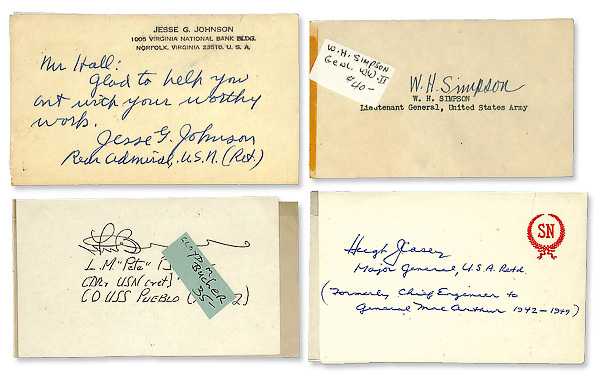 JESSE G. JOHNSON
1005 VIRGINIA NATIONAL BANK BLDG.
NORFOLK, VIRGINIA 23510, U. S. A.
Mr Hall:
Glad to help you
out with your worthy
work.
Jesse G. Johnson
Rear Admiral, U.S.N. (Ret.)
W.H. SIMPSON
GENL WW-II
$40-
W. H. Simpson
W. H. SIMPSON
Lieutenant General, United States Army
L.M "Pete"
CDR, USN (ret)
CO USS PUEBLO
2)
LLOYD M.
BUCHER
35-
SN
Hugh J Casey
Major General, U.S.A. Retd.
(Formerly Chief Engineer to
General MacArthur 1942-1949)